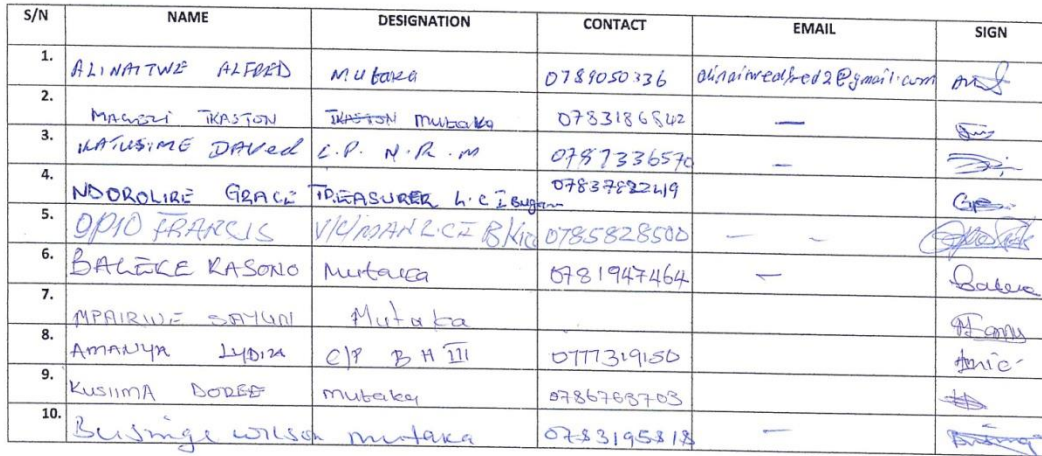 S/N NAME DESIGNATION CONTACT EMAIL SIGN
1. ALINAITWE ALFRED Mutaka 0789050336 alinaitwealfred2@gmail.com
2. IKASTON IKASTON mutaka 0783186842 —
3. KATUSIME DAVed C.P. N.R.M 0787336570 —
4. NDOROLIRE GRACE TREASURER L.C I 07837822419
5. OPIO FRANCIS V/C/MAN L.C I 0785828500 — —
6. BALEKE KASONO Mutaka 0781947464 —
7. MPAIRWE Mutaka
8. AMANYA LYDIA C/P B H III 0777319150
9. KUSIIMA DOREE mutaka 0786763703
10. Businge wilson mutaka 0783195818 —